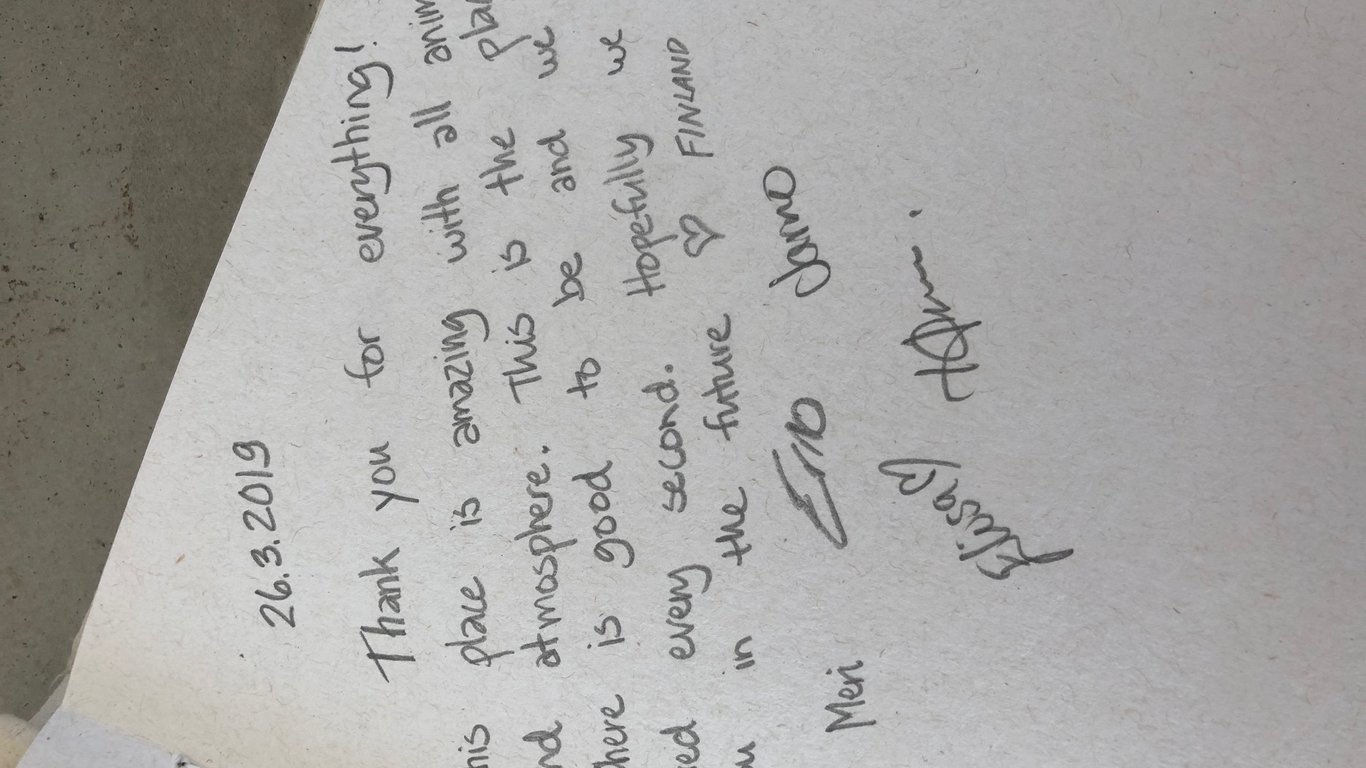 26.3.2019
Thank you for everything!
his place is amazing with all anim
nd atmosphere. This is the pla
here is good to be and we
ed every second. Hopefully we
u in the future ♡ FINLAND
Meri Eño Jarno
Elissa ♡